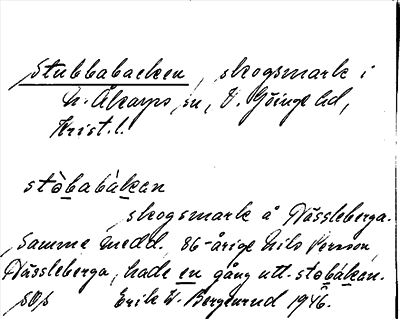 Stubbabacken, skogsmark i
N. Åkarps sn, V. Göinge hd,
Krist. l.
stòbabàkan
skogsmark å Nässleberga.
Samme medd. 86-årige Nils Persson,
Nässleberga, hade en gång utt. stobàkan.
Erik W. Bergenrud 1946.